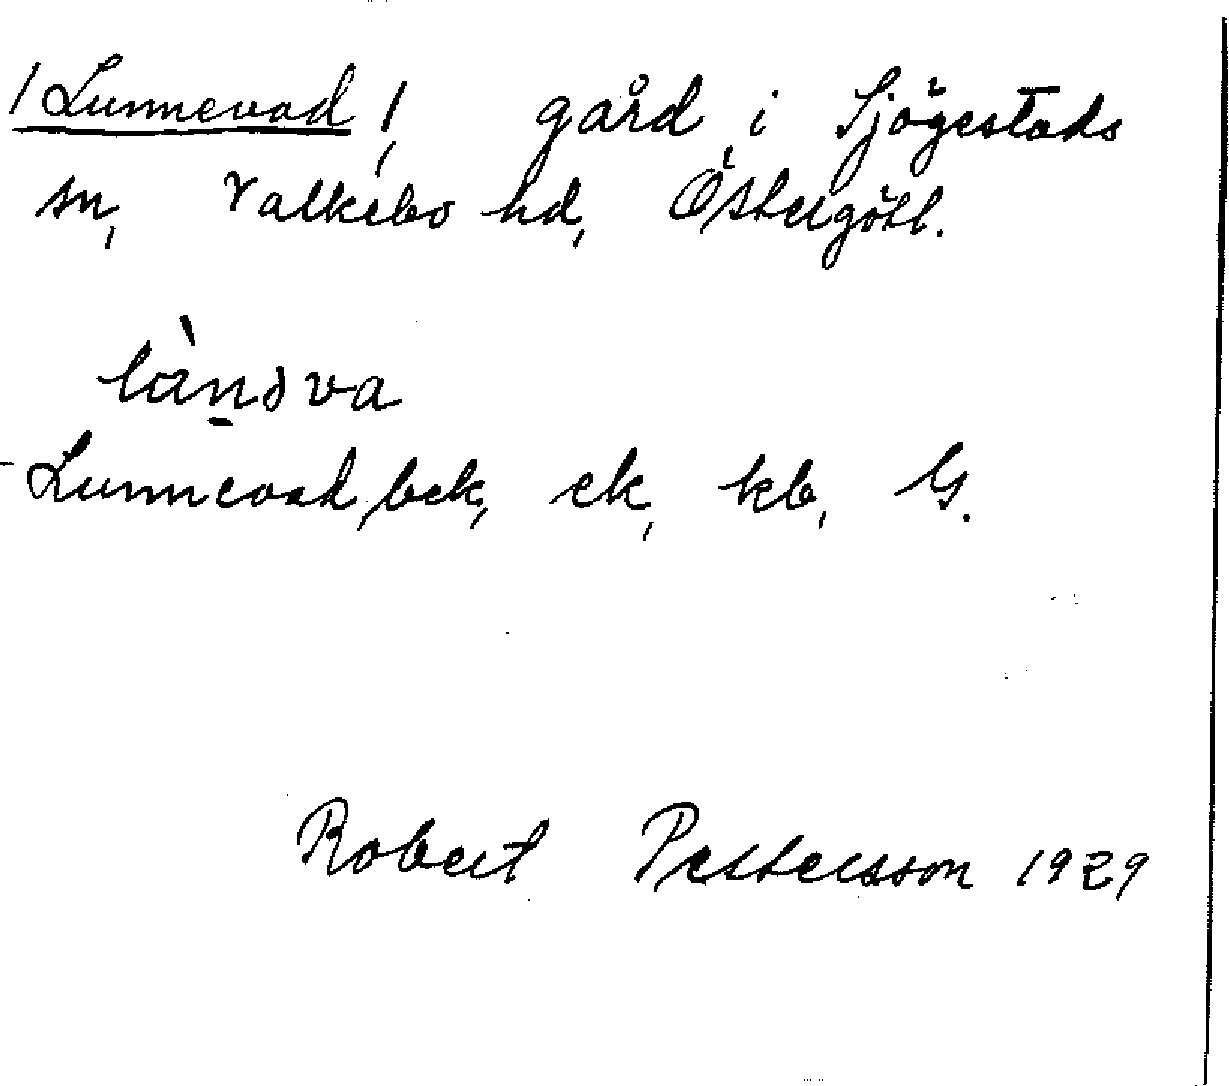 /Lunnevad/, gård i Sjögestads
sn, Valkebo hd, Östergötl.
lànəva
Lunnevad, bek, ek, kb, G.
Robert Pettersson 1929